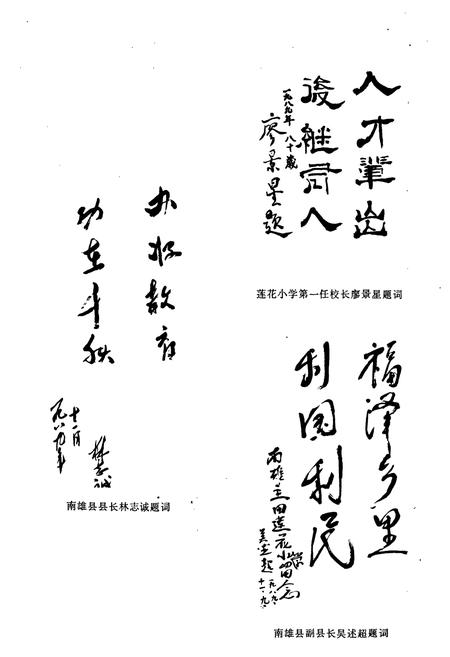 人才辈出
后继有人
一九八九年 八十岁
廖景星题
莲花小学第一任校长廖景星题词
办好教育
功在千秋
一九八九年
十一月
林志诚
南雄县县长林志诚题词
福泽乡里
利国利民
南雄兰田莲花小学留念
吴述超 一九八九
十一、九
南雄县副县长吴述超题词